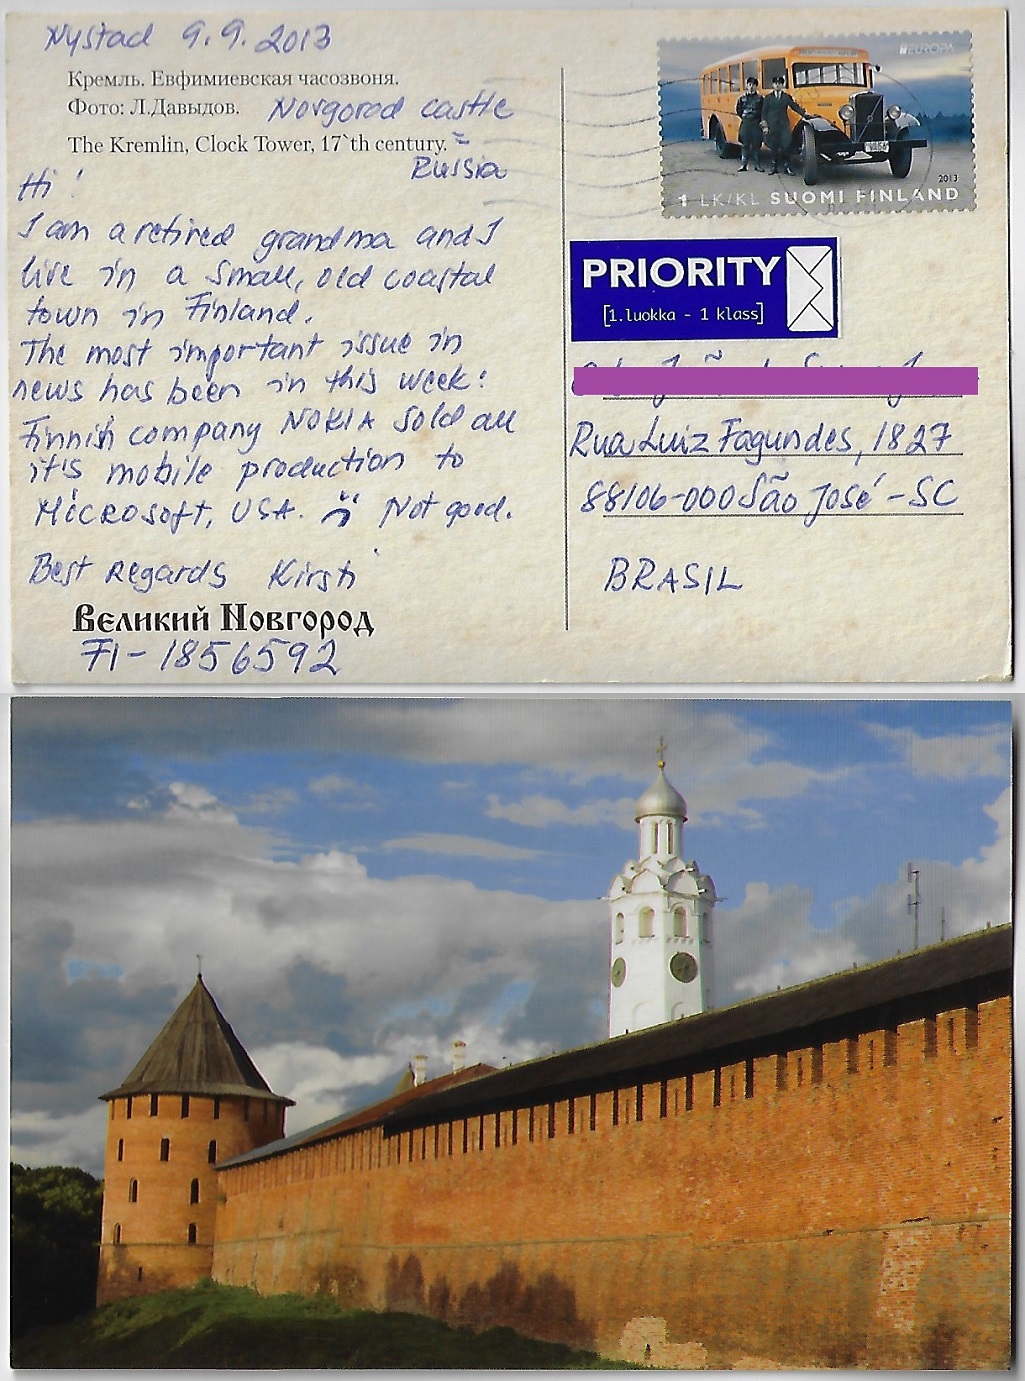 Nystad 9.9.2013
Кремль. Евфимиевская часозвоня.
Фото: Л.Давыдов. Novgorod castle
The Kremlin, Clock Tower, 17`th century.
Russia
Hi!
I am a retired grandma and I
live in a small, old coastal
town in Finland.
The most important issue in
news has been in this week:
Finnish company NOKIA sold all
it's mobile production to
Microsoft, USA. Not good.
Best Regards Kirsti
Великий Новгород
FI-1856592
EUROPA
2013
1 LK/KL SUOMI FINLAND
PRIORITY
[1.luokka - 1 klass]
Rua Luiz Fagundes, 1827
88106-000 São José - SC
BRASIL